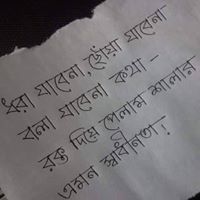 ধরা যাবেনা, ছোঁয়া যাবেনা
বলা যাবেনা কথা -
রক্ত দিয়ে পেলাম শালার
এমন স্বাধীনতা!